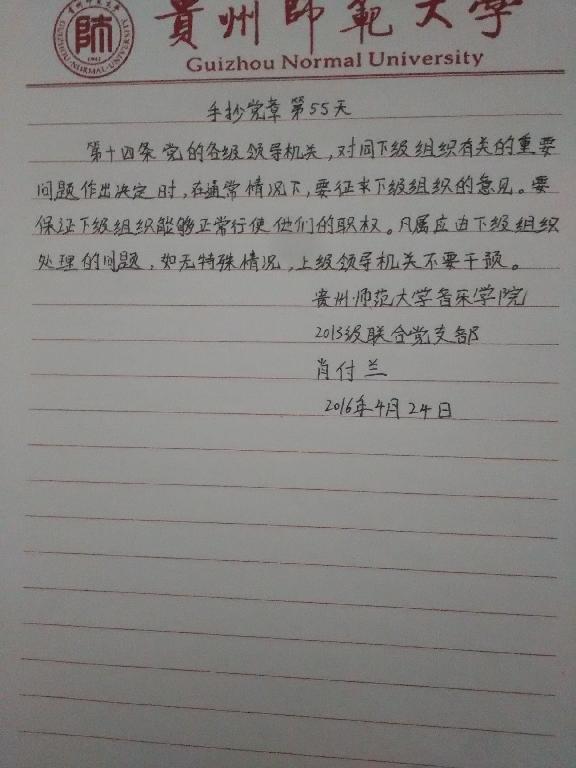 貴州師範大學
Guizhou Normal University
貴州師範大學
師
1941
GUIZHOU NORMAL UNIVERSITY
手抄党章第55天
第十四条 党的各级领导机关，对同下级组织有关的重要
问题作出决定时，在通常情况下，要征求下级组织的意见。要
保证下级组织能够正常行使他们的职权。凡属应由下级组织
处理的问题，如无特殊情况，上级领导机关不要干预。
贵州师范大学音乐学院
2013级联合党支部
肖付兰
2016年4月24日